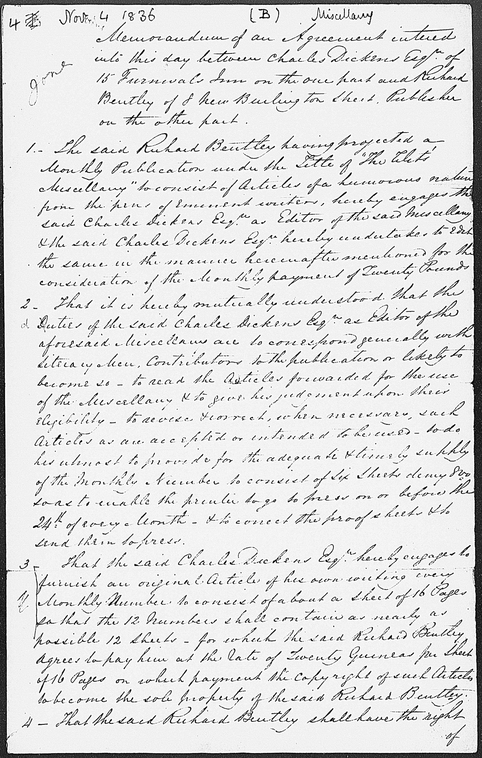 4 Nov. 4 1836 (B) Miscellany
done
Memorandum of an Agreement entered
into this day between Charles Dickens Esqre. of
15 Furnivals Inn on the one part and Richard
Bentley of 8 New Burlington Street, Publisher
on the other part.
1. - The said Richard Bentley having projected a
Monthly Publication under the Title of "The Wits'
Miscellany" to consist of Articles of a humorous nature
from the pens of Eminent writers, hereby engages the
said Charles Dickens Esqre. as Editor of the said Miscellany
& the said Charles Dickens Esqre. hereby undertakes to Edit
the same in the manner hereinafter mentioned for the
consideration of the Monthly payment of Twenty Pounds
2 - That it is hereby mutually understood that the
Duties of the said Charles Dickens Esqre. as Editor of the
aforesaid Miscellany are to correspond generally with
literary Men, Contributors to the publication or likely to
become so - to read the Articles forwarded for the use
of the Miscellany & to give his judgement upon their
eligibility - to devise & correct, when necessary, such
Articles as are accepted or intended to be used - to do
his utmost to provide for the adequate & timely supply
of the Monthly Number to consist of Six Sheets demy 8vo
so as to enable the printer to go to press on or before the
24th of every Month - & to correct the proof sheets & to
send them to press.
3 - That the said Charles Dickens Esqre. hereby engages to
furnish an original Article of his own writing every
Monthly Number to consist of about a sheet of 16 Pages
so that the 12 Numbers shall contain as nearly as
possible 12 sheets - for which the said Richard Bentley
agrees to pay him at the rate of Twenty Guineas per Sheet
of 16 Pages on which payment the Copyright of such Articles
to become the sole property of the said Richard Bentley.
4 - That the said Richard Bentley shall have the right
of